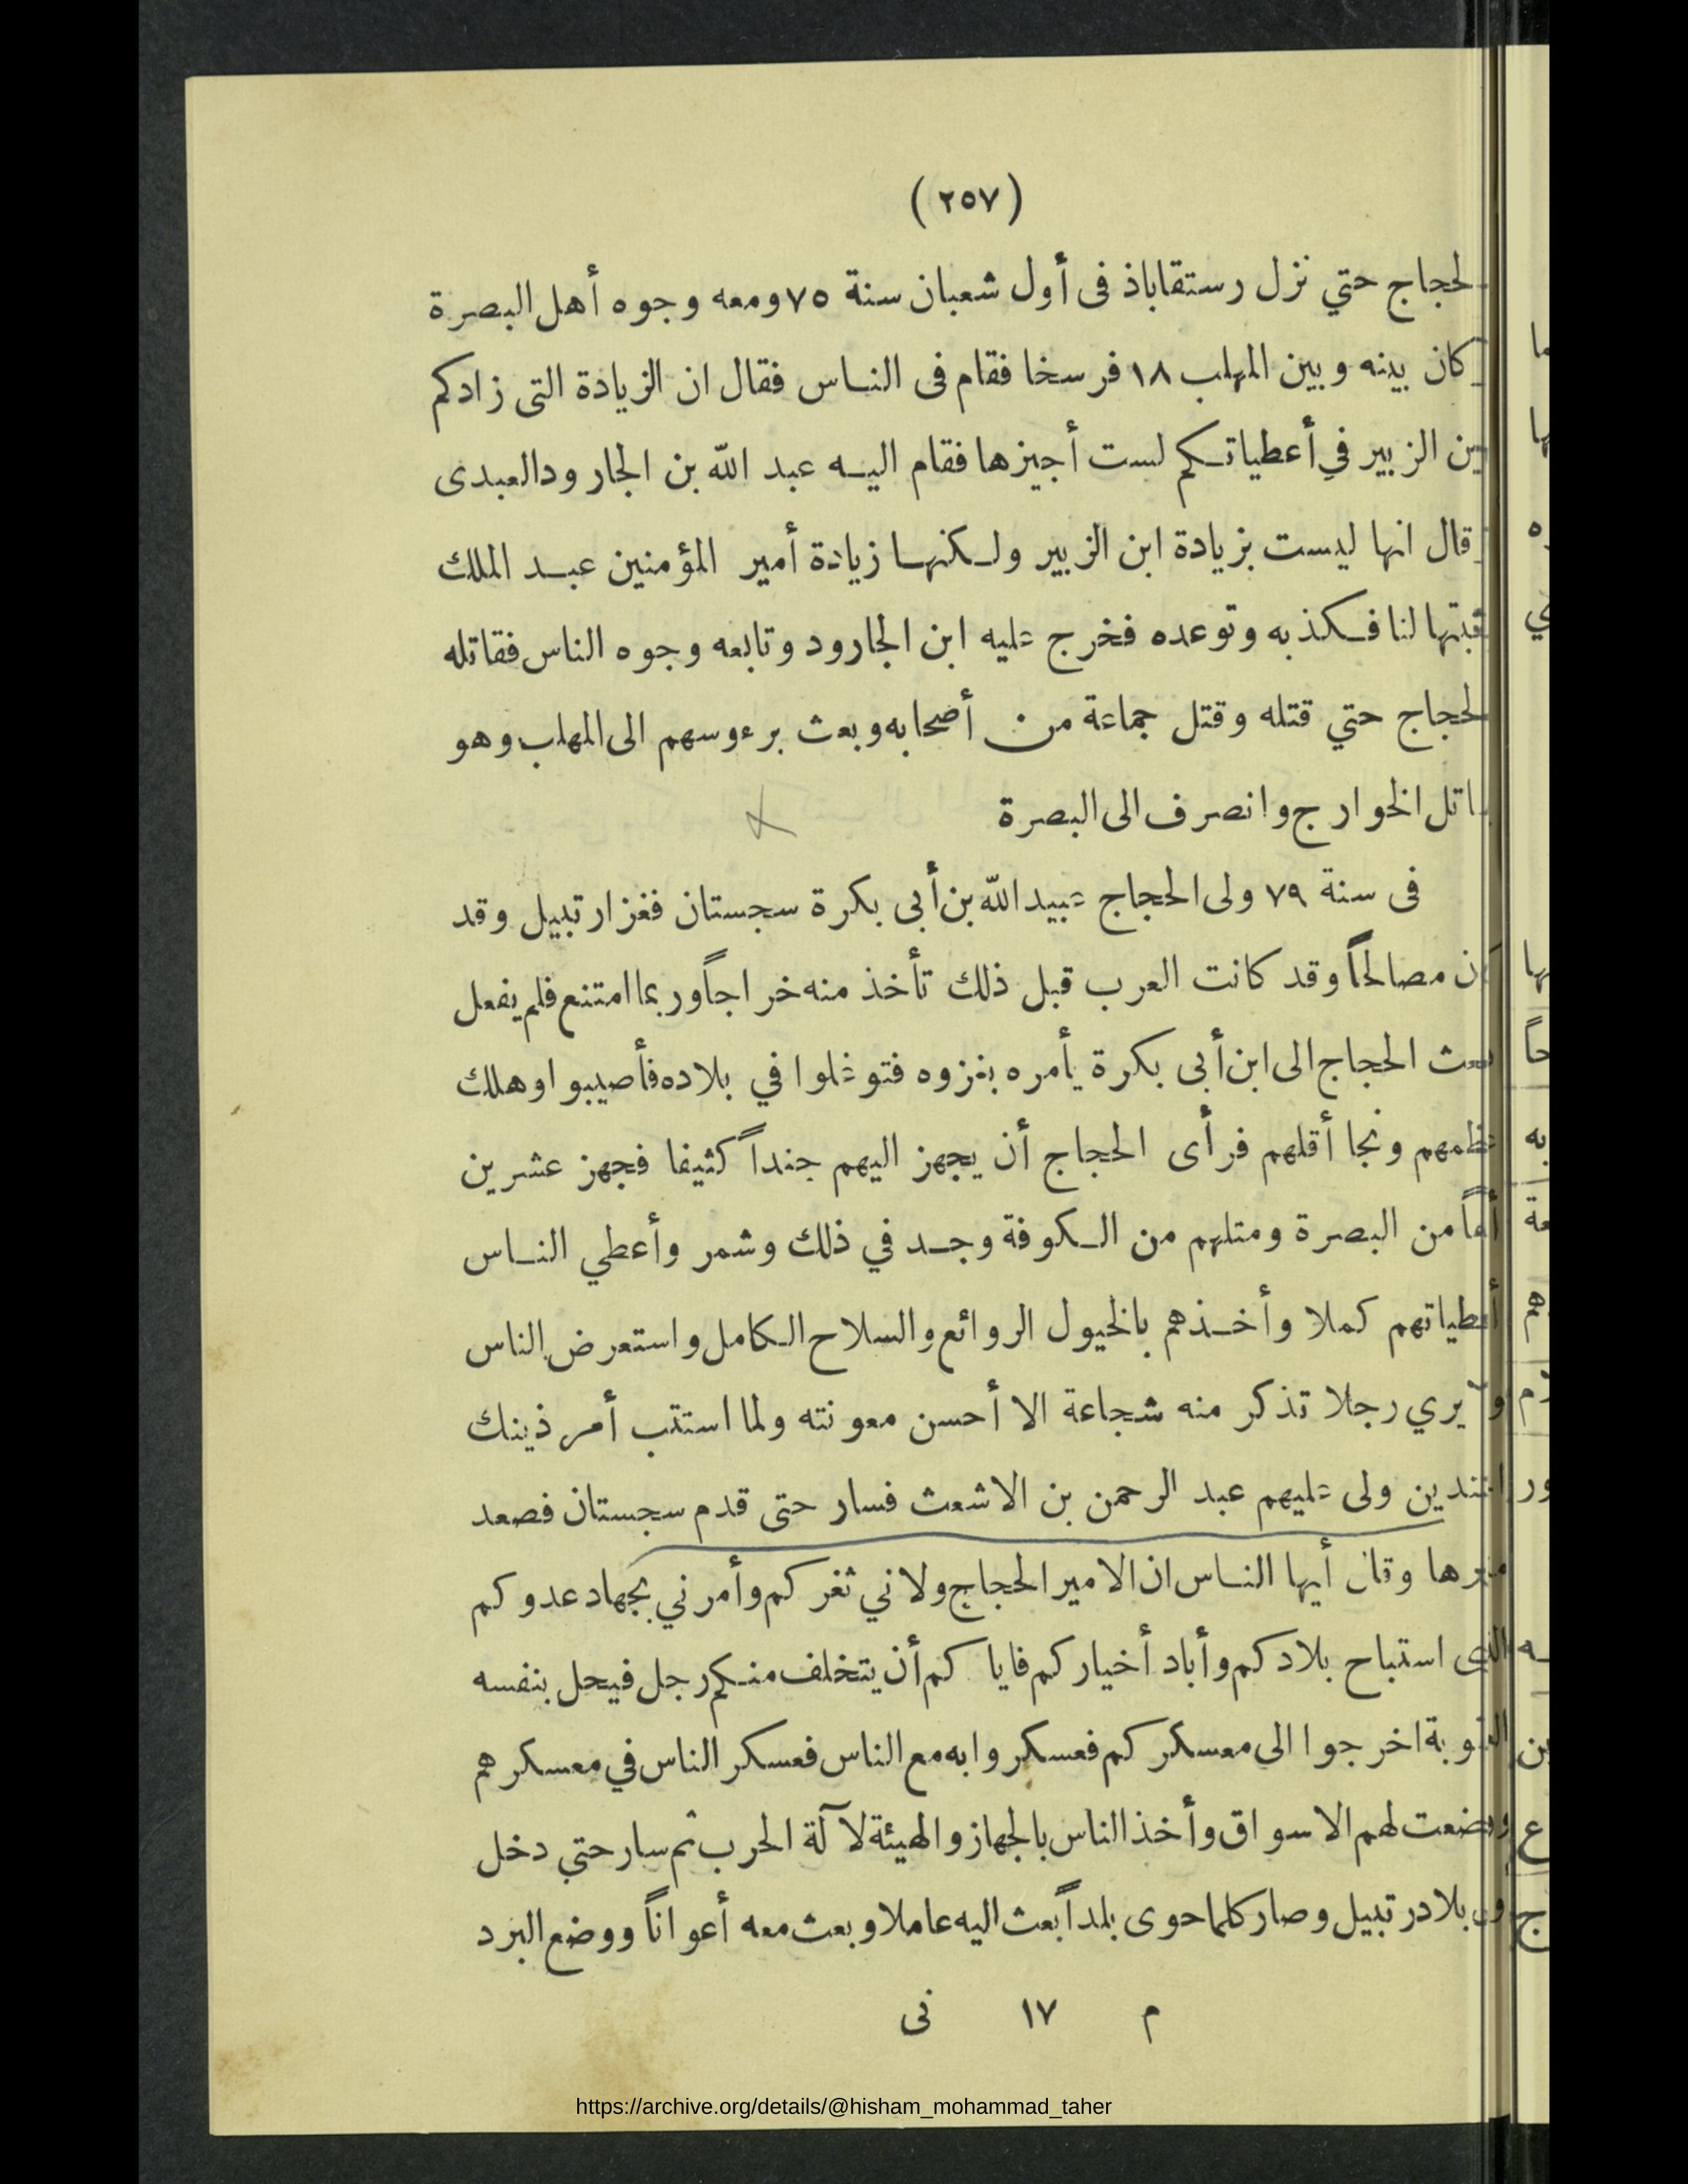 (٢٥٧)
لحجاج حتي نزل رستقاباذ فى أول شعبان سنة ٧٥ ومعه وجوه أهل البصرة
كان بينه وبين المهلب ١٨ فرسخا فقام فى الناس فقال ان الزيادة التى زادكم
الزبير في أعطياتكم لست أجيزها فقام اليه عبد الله بن الجارود العبدى
قال انها ليست بزيادة ابن الزبير ولكنها زيادة أمير المؤمنين عبد الملك
لنا فكذبه وتوعده فخرج عليه ابن الجارود وتابعه وجوه الناس فقاتله
لحجاج حتي قتله وقتل جماعة من أصحابه وبعث برءوسهم الى المهلب وهو
اتل الخوارج وانصرف الى البصرة
فى سنة ٧٩ ولى الحجاج عبيد الله بن أبى بكرة سجستان فغزا رتبيل وقد
مصالحاً وقد كانت العرب قبل ذلك تأخذ منه خراجاً وربما امتنع فلم يفعل
الحجاج الى ابن أبى بكرة يأمره بغزوه فتوغلوا في بلاده فأصيبوا وهلك
ونجا أقلهم فرأى الحجاج أن يجهز اليهم جنداً كثيفا فجهز عشرين
من البصرة ومثلهم من الكوفة وجد في ذلك وشمر وأعطي الناس
أعطياتهم كملا وأخذهم بالخيول الروائع والسلاح الكامل واستعرض الناس
ولا يري رجلا تذكر منه شجاعة الا أحسن معونته ولما استتب أمر ذينك
ولى عليهم عبد الرحمن بن الاشعث فسار حتى قدم سجستان فصعد
وقال أيها الناس ان الامير الحجاج ولاني ثغركم وأمرني بجهاد عدوكم
الذى استباح بلادكم وأباد أخياركم فاياكم أن يتخلف منكم رجل فيحل بنفسه
العقوبة اخرجوا الى معسكركم فعسكروا به مع الناس فعسكر الناس في معسكرهم
ووضعت لهم الاسواق وأخذ الناس بالجهاز والهيئة لآلة الحرب ثم سار حتي دخل
بلاد رتبيل وصار كلما حوى بلداً بعث اليه عاملا وبعث معه أعواناً ووضع البرد
م ١٧ نى
https://archive.org/details/@hisham_mohammad_taher